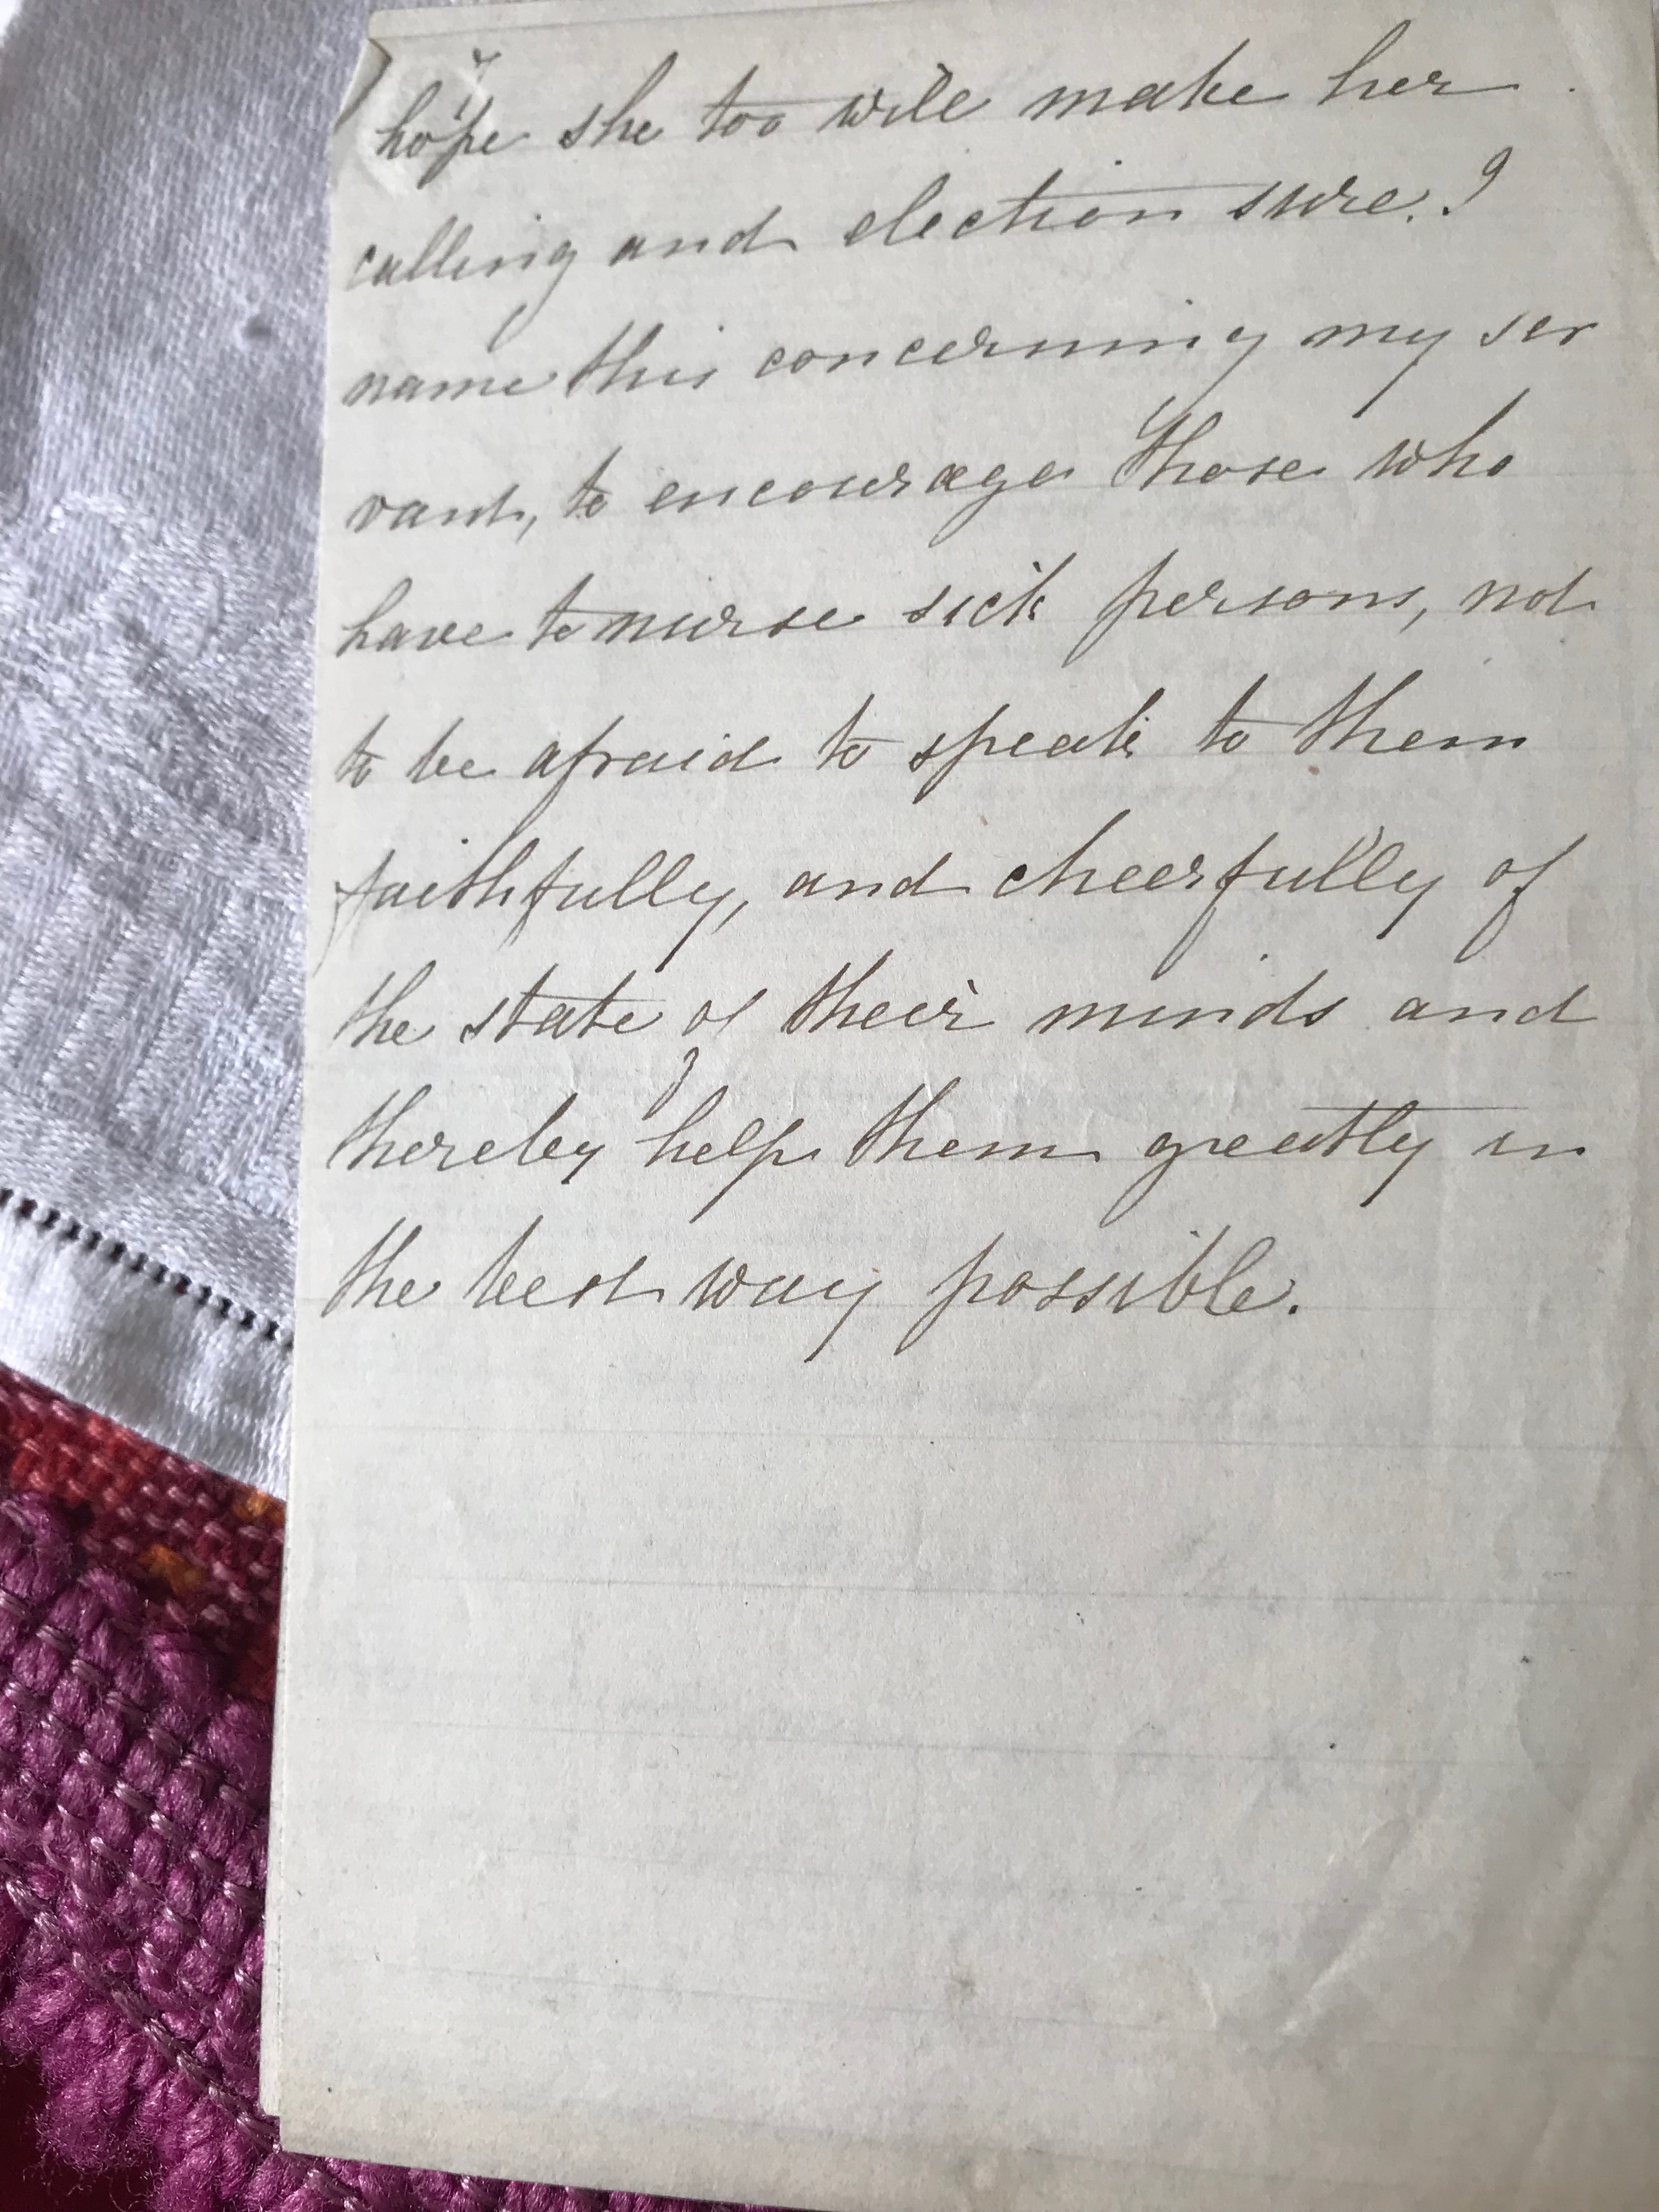 I
hope she too will make her
calling and election sure. I
name this concerning my ser
vant, to encourage those who
have to nurse sick persons, not
to be afraid to speak to them
faithfully, and cheerfully of
the state of their minds and
thereby help them greatly in
the best way possible.